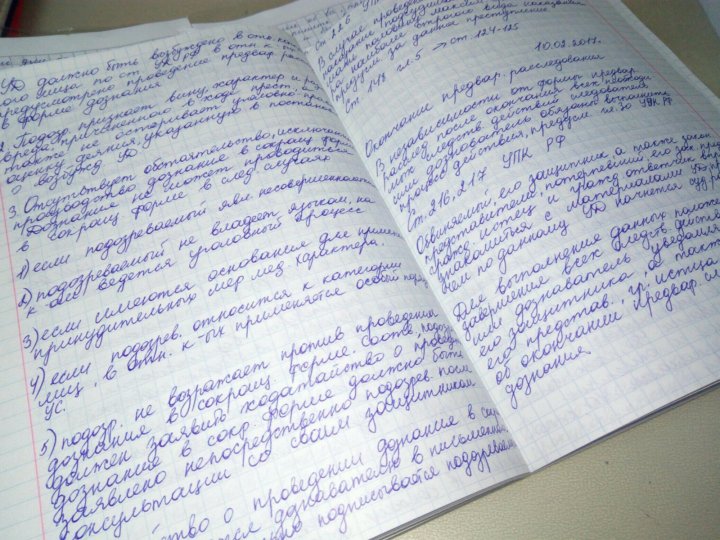 УД должно быть возбуждено в отн. конкр
ого лица по ст. УК РФ в отн. к-ого
предусмотрено проведение предвар. рассл
в форме дознания
2. Подозр. признает вину, характер и раз
вреда, причиненного в ходе прест.
также не оспаривает уголовно-пр.
оценку деяния, указанную в постан.
о возбужд. УД
3. Отсутствует обстоятельство, исключающ
производство дознание в сокращ. форме
Дознание не может проводиться
в сокращ. форме в след. случаях
1) если подозреваемый явл. несовершеннолетн
2) подозреваемый не владеет языком, на
к-ом ведется уголовный процесс
3) если имеются основания для примен.
принудительных мер мед. характера.
4) если подозрев. относится к категории
лиц, в отн. к-ых применяется особый поряд
УС.
5) подозр. не возражает против проведения
дознания в сокращ. форме. Соотв. подозр.
должен заявить ходатайство о проведе
дознание в сокр. форме должно быть
заявлено непосредственно подозрев. посл
консультации со своим защитником
ство о проведении дознания в сокр
дознавателю в письменном
подписывается подозреваем
Ст. 226 УПК
В случае проведен
Ст. 118 гл. 5 → ст. 124-125
10.02.2017.
Окончание предвар. расследования
В независимости от формы предвар.
расслед. после окончания всех необходи
мых следств. действий следователь
или дознаватель обязаны выполнить
процесс. действия, предусм. гл. 30 УПК РФ
Ст. 216, 217 УПК РФ
Обвиняемый, его защитник а также закон
представители, потерпевший, его зак. пред
ознакомиться с материалами УД
чем по данному УД начнется суд. раз
Для выполнения данных полож
завершение всех следств. действ
или дознаватель уведомля
его защитника, а также
его представ., гр. истца
об окончании предвар. сл
дознания